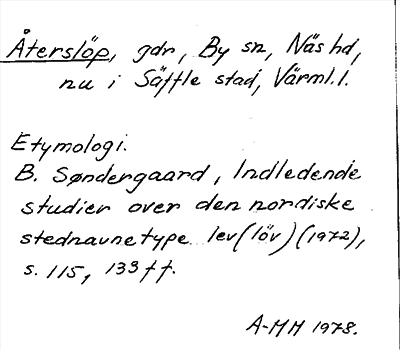 Återslöp, gdr, By sn, Näs hd,
nu i Säffle stad, Värml. l.
Etymologi.
B. Søndergaard, Indledende
studier over den nordiske
stednavnetype lev (löv) (1972),
s. 115, 133 ff.
A-MH 1978.